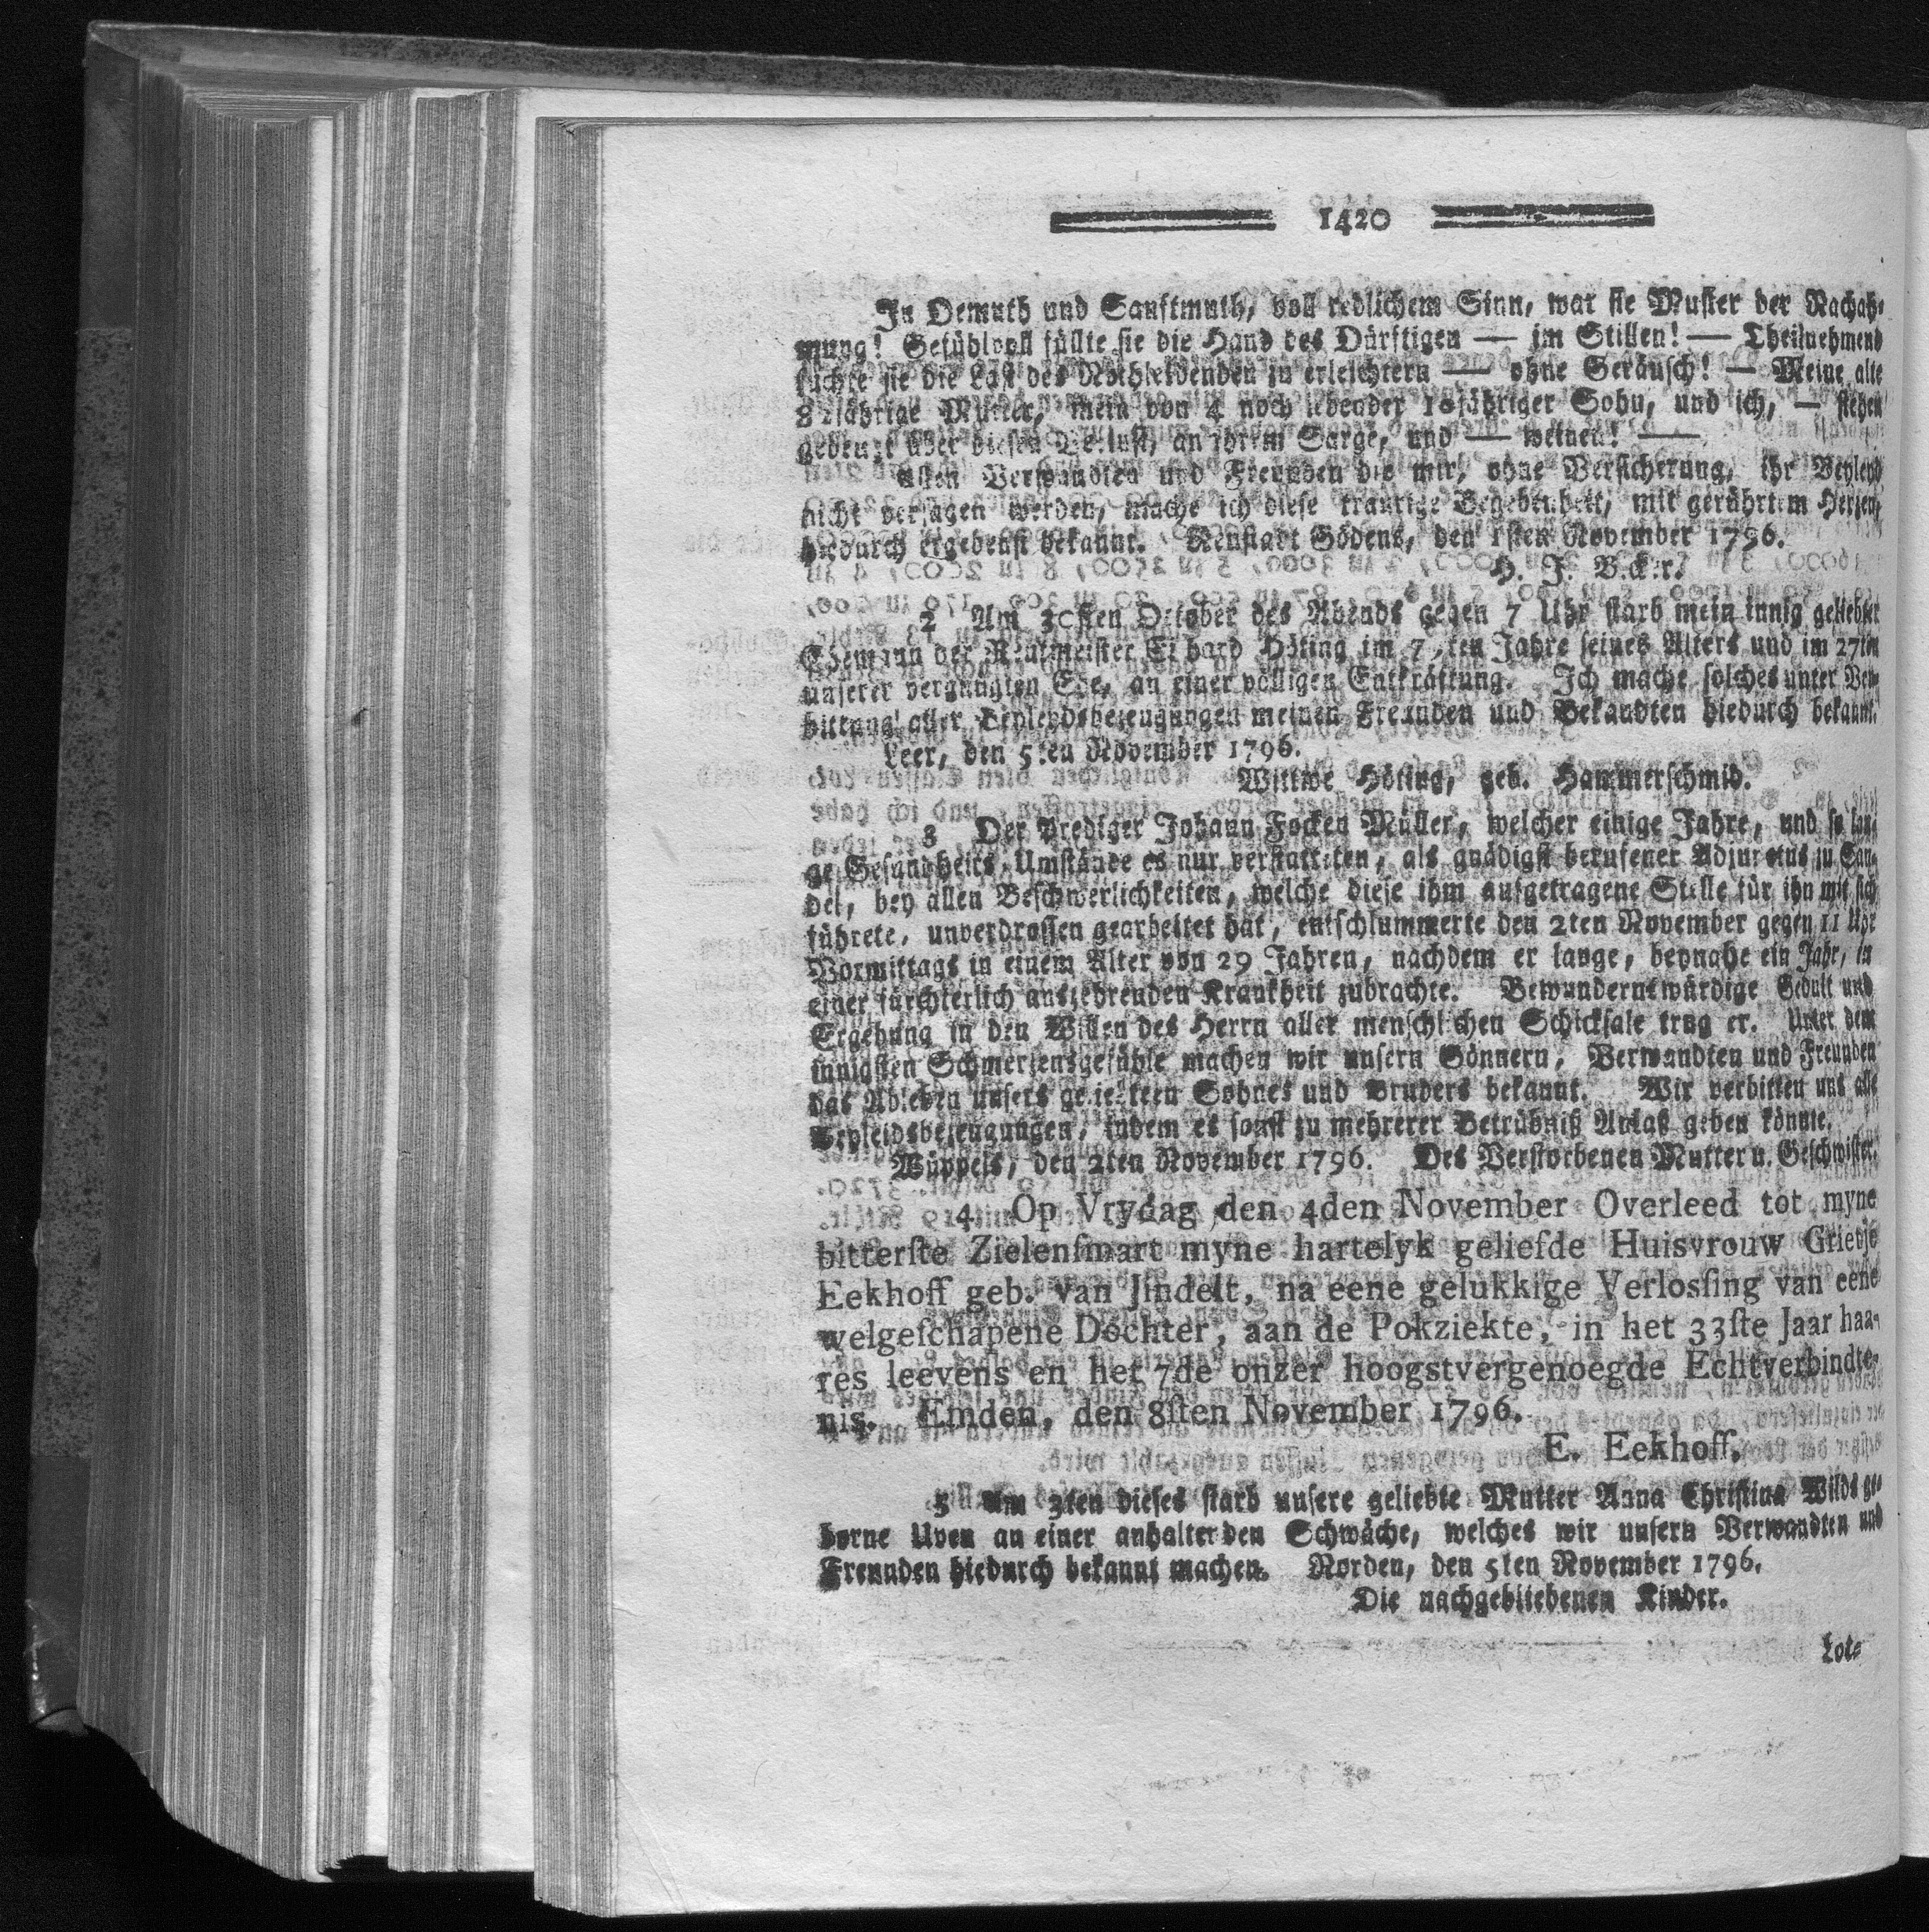 1420
In Demuth und Sanftmuth, voll redlichem Sinn, war sie Muster der Nachah-
mung! Gefühlvoll füllte sie die Hand des Dürftigen — im Stillen! — Theilnehmend
suchte sie die Last des Nothleidenden zu erleichtern — ohne Geräusch! — Meine alte
82jährige Mutter, mein von 4 noch lebender 10jähriger Sohn, und ich, — stehen
gebeugt über diesen Verlust, an ihrem Sarge, und — weinen! —
Allen Verwandten und Freunden die mir, ohne Versicherung, ihr Beyleyd
nicht versagen werden, mache ich diese traurige Begebenheit, mit gerührtem Herzen,
hiedurch ergebenst bekannt. Neustadt Gödens, den 1sten November 1796.
H. J.
2 Am 30sten October des Abends gegen 7 Uhr starb mein innig geliebter
Ehemann der Rentmeister Höting im Jahre seines Alters und im 27ten
unserer vergnügten Ehe, an einer völligen Entkräftung. Ich mache solches unter Ver-
bittung aller Beyleydsbezeugungen meinen Freunden und Bekandten hiedurch bekannt.
Leer, den 5ten November 1796.
Wittwe Höting, geb. Hammerschmid.
3 Der Prediger Johann Focken Müller, welcher einige Jahre, und so lan-
ge Gesundheits-Umstände es nur verstatteten, als gnädigst berufener Adjunctus zu San-
del, bey allen Beschwerlichkeiten, welche diese ihm aufgetragene Stelle für ihn mit sich
führete, unverdrossen gearbeitet hat, entschlummerte den 2ten November gegen 11 Uhr
Vormittags in einem Alter von 29 Jahren, nachdem er lange, beynahe ein Jahr, in
einer fürchterlich auszehrenden Krankheit zubrachte. Bewundernswürdige Gedult und
Ergebung in den Willen des Herrn aller menschlichen Schicksale trug er. Unter dem
innigsten Schmerzensgefühle machen wir unsern Gönnern, Verwandten und Freunden
das Ableben unsers geliebten Sohnes und Bruders bekannt. Wir verbitten uns alle
Beyleidsbezeugungen, indem es sonst zu mehrerer Betrübniß Anlaß geben könnte.
Wüppels, den 2ten November 1796. Des Verstorbenen Mutter u. Geschwister.
4. Op Vrydag den 4den November Overleed tot myne
bitterſte Zielenſmart myne hartelyk geliefde Huisvrouw Grietje
Eekhoff geb. van Jindelt, na eene gelukkige Verlosſing van eene
welgeſchapene Dochter, aan de Pokziekte, in het 33ſte Jaar haa-
res leevens en het 7de onzer hoogstvergenoegde Echtverbindte-
nis. Emden, den 8ſten November 1796.
E. Eekhoff.
5 Am 3ten dieses starb unsere geliebte Mutter Anna Christina Wilds ge-
borne Uven an einer anhaltenden Schwäche, welches wir unsern Verwandten und
Freunden hiedurch bekannt machen. Norden, den 5ten November 1796.
Die nachgebliebenen Kinder.
Lot-